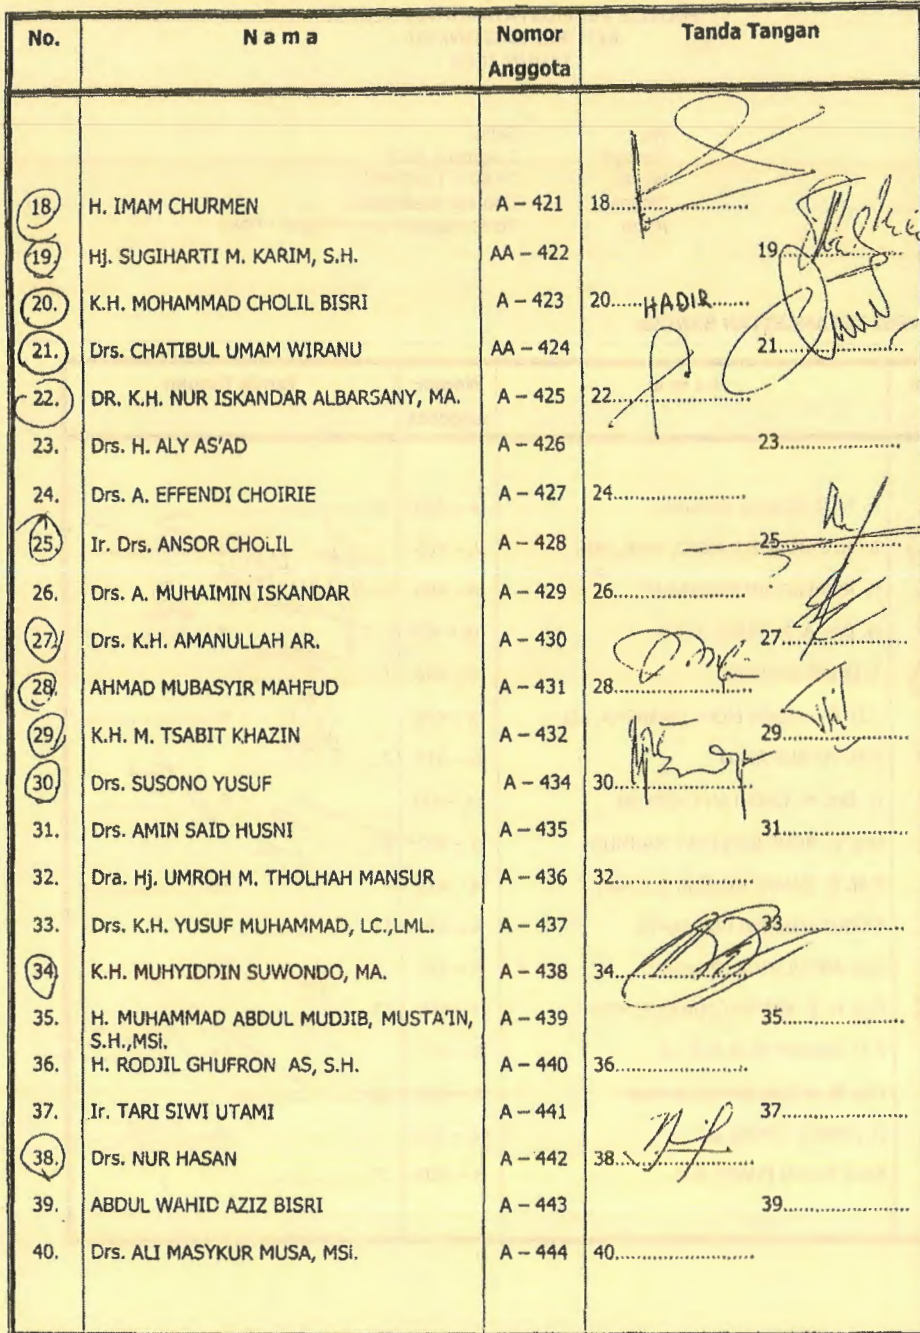 No. Nama Nomor Anggota Tanda Tangan
18. H. IMAM CHURMEN A – 421 18..................
19. Hj. SUGIHARTI M. KARIM, S.H. AA – 422 19..................
20. K.H. MOHAMMAD CHOLIL BISRI A – 423 20...... HADIR ......
21. Drs. CHATIBUL UMAM WIRANU AA – 424 21..................
22. DR. K.H. NUR ISKANDAR ALBARSANY, MA. A – 425 22..................
23. Drs. H. ALY AS'AD A – 426 23..................
24. Drs. A. EFFENDI CHOIRIE A – 427 24..................
25. Ir. Drs. ANSOR CHOLIL A – 428 25..................
26. Drs. A. MUHAIMIN ISKANDAR A – 429 26..................
27. Drs. K.H. AMANULLAH AR. A – 430 27..................
28. AHMAD MUBASYIR MAHFUD A – 431 28..................
29. K.H. M. TSABIT KHAZIN A – 432 29..................
30. Drs. SUSONO YUSUF A – 434 30..................
31. Drs. AMIN SAID HUSNI A – 435 31..................
32. Dra. Hj. UMROH M. THOLHAH MANSUR A – 436 32..................
33. Drs. K.H. YUSUF MUHAMMAD, LC.,LML. A – 437 33..................
34. K.H. MUHYIDDIN SUWONDO, MA. A – 438 34..................
35. H. MUHAMMAD ABDUL MUDJIB, MUSTA'IN, A – 439 35..................
S.H.,MSi.
36. H. RODJIL GHUFRON AS, S.H. A – 440 36..................
37. Ir. TARI SIWI UTAMI A – 441 37..................
38. Drs. NUR HASAN A – 442 38..................
39. ABDUL WAHID AZIZ BISRI A – 443 39..................
40. Drs. ALI MASYKUR MUSA, MSi. A – 444 40..................